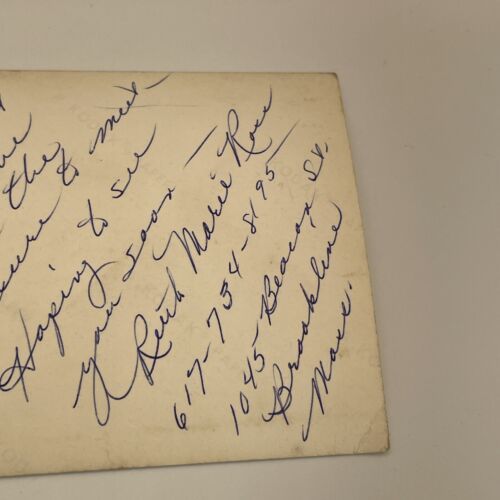 the
to meet
Hoping to see
you soon —
Ruth Marie Rose
617-734-8195
1045-Beacon St.
Brookline
Mass.